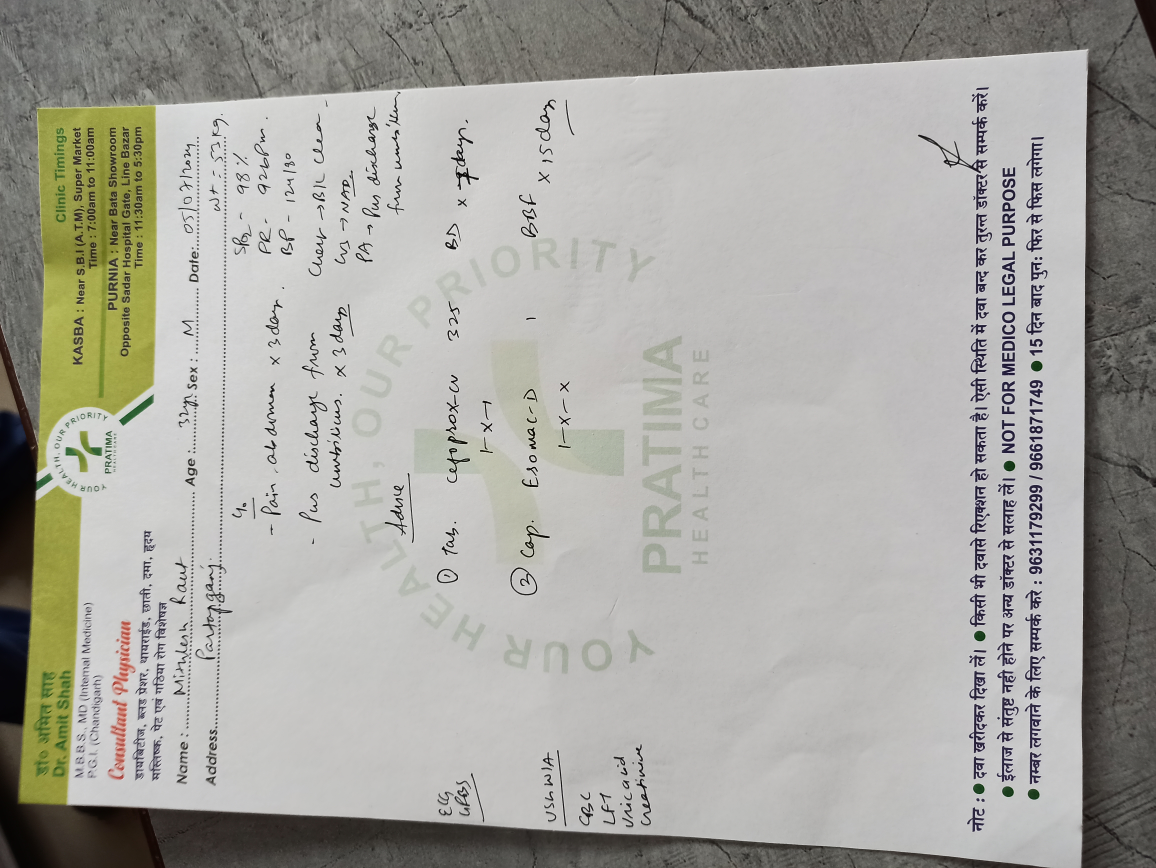 डॉ० अमित साह
Dr. Amit Shah
M.B.B.S., MD (Internal Medicine)
P.G.I. (Chandigarh)
Consultant Physician
डायबिटीज, ब्लड प्रेशर, थायराईड, छाती, दमा, हृदय
मस्तिष्क, पेट एवं गठिया रोग विशेषज्ञ
YOUR HEALTH, OUR PRIORITY
PRATIMA
HEALTHCARE
Clinic Timings
KASBA : Near S.B.I (A.T.M), Super Market
Time : 7:00am to 11:00am
PURNIA : Near Bata Showroom
Opposite Sadar Hospital Gate, Line Bazar
Time : 11:30am to 5:30pm
Name : Mithlesh Raut Age : 32yr Sex : M Date: 05/07/2024
Address Partapganj. Wt - 53 kg.
- Pain abdomen x 3 days.
- Pus discharge from
umbilicus. x 3 days
SPO2 - 98%
PR - 92 bpm.
BP - 124/80
Chest → B/L clear
CVS → NAD
PA → Pus discharge
from umbilicus
Advice
① Tab. Cefoprox-CV 325 BD x 7 days.
1-x-1
② Cap. Esomac-D 1 BBF x 15 days
1-x-x
ECG
USG W/A
CBC
LFT
Uric acid
Creatinine
YOUR HEALTH, OUR PRIORITY
PRATIMA
HEALTH CARE
नोट : ● दवा खरीदकर दिखा लें। ● किसी भी दवासे रिएक्शन हो सकता है। ऐसी स्थिति में दवा बन्द कर तुरन्त डॉक्टर से सम्पर्क करें।
● ईलाज से संतुष्ट नही होने पर अन्य डॉक्टर से सलाह लें। ● NOT FOR MEDICO LEGAL PURPOSE
● नम्बर लगवाने के लिए सम्पर्क करे : 9631179299 / 9661871749 ● 15 दिन बाद पुन: फिर से फिस लगेगा।